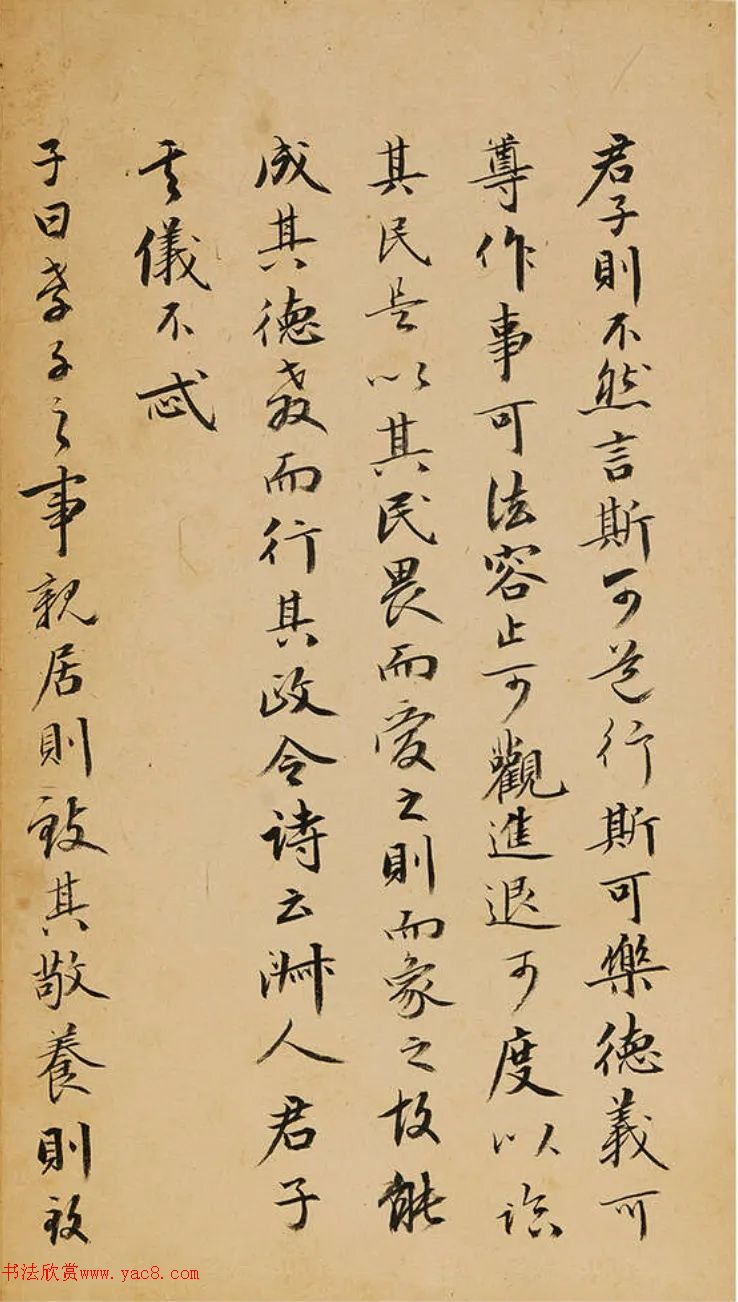 君子則不然言斯可道行斯可樂德義可
尊作事可法容止可觀進退可度以臨
其民是以其民畏而愛之則而象之故能
成其德教而行其政令詩云淑人君子
其儀不忒
子曰孝子之事親居則致其敬養則致
书法欣赏www.yac8.com